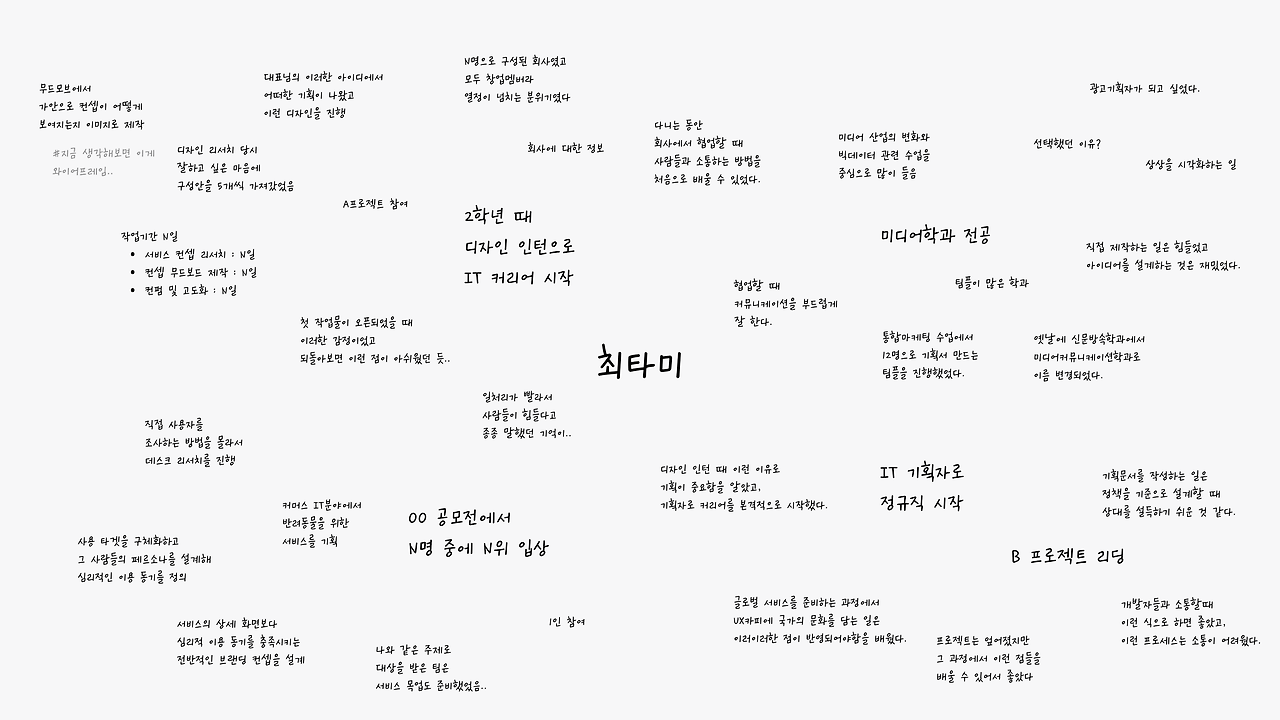 무드보드에서
가안으로 컨셉이 어떻게
보여지는지 이미지로 제작
#지금 생각해보면 이게
와이어프레임..
대표님의 이러한 아이디에서
어떠한 기획이 나왔고
이런 디자인을 진행
N명으로 구성된 회사였고
모두 창업멤버라
열정이 넘치는 분위기였다
회사에 대한 정보
디자인 리서치 당시
잘하고 싶은 마음에
구성안을 5개씩 가져갔었음
A프로젝트 참여
2학년 때
디자인 인턴으로
IT 커리어 시작
작업기간 N일
• 서비스 컨셉 리서치 : N일
• 컨셉 무드보드 제작 : N일
• 컨펌 및 고도화 : N일
첫 작업물이 오픈되었을 때
이러한 감정이었고
되돌아보면 이런 점이 아쉬웠던 듯..
다니는 동안
회사에서 협업할 때
사람들과 소통하는 방법을
처음으로 배울 수 있었다.
미디어 산업의 변화와
빅데이터 관련 수업을
중심으로 많이 들음
광고기획자가 되고 싶었다.
선택했던 이유?
상상을 시각화하는 일
미디어학과 전공
직접 제작하는 일은 힘들었고
아이디어를 설계하는 것은 재밌었다.
팀플이 많은 학과
협업할 때
커뮤니케이션을 부드럽게
잘 한다.
통합마케팅 수업에서
12명으로 기획서 만드는
팀플을 진행했었다.
옛날에 신문방송학과에서
미디어커뮤니케이션학과로
이름 변경되었다.
최타미
일처리가 빨라서
사람들이 힘들다고
종종 말했던 기억이..
직접 사용자를
조사하는 방법을 몰라서
데스크 리서치를 진행
커머스 IT분야에서
반려동물을 위한
서비스를 기획
OO 공모전에서
N명 중에 N위 입상
사용 타겟을 구체화하고
그 사람들의 페르소나를 설계해
심리적인 이용 동기를 정의
서비스의 상세 화면보다
심리적 이용 동기를 충족시키는
전반적인 브랜딩 컨셉을 설계
1인 참여
나와 같은 주제로
대상을 받은 팀은
서비스 목업도 준비했었음..
디자인 인턴 때 이런 이유로
기획이 중요함을 알았고,
기획자로 커리어를 본격적으로 시작했다.
IT 기획자로
정규직 시작
기획문서를 작성하는 일은
정책을 기준으로 설계할 때
상대를 설득하기 쉬운 것 같다.
B 프로젝트 리딩
글로벌 서비스를 준비하는 과정에서
UX카피에 국가의 문화를 담는 일은
이러이러한 점이 반영되어야함을 배웠다.
프로젝트는 엎어졌지만
그 과정에서 이런 점들을
배울 수 있어서 좋았다
개발자들과 소통할때
이런 식으로 하면 좋았고,
이런 프로세스는 소통이 어려웠다.